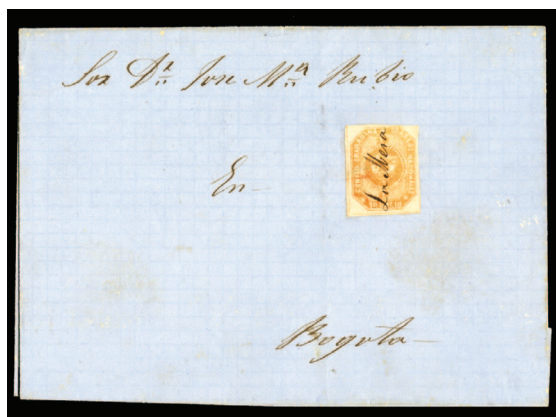 Sor Dn Jose Ma Rubio
La Mesa
En
Bogota